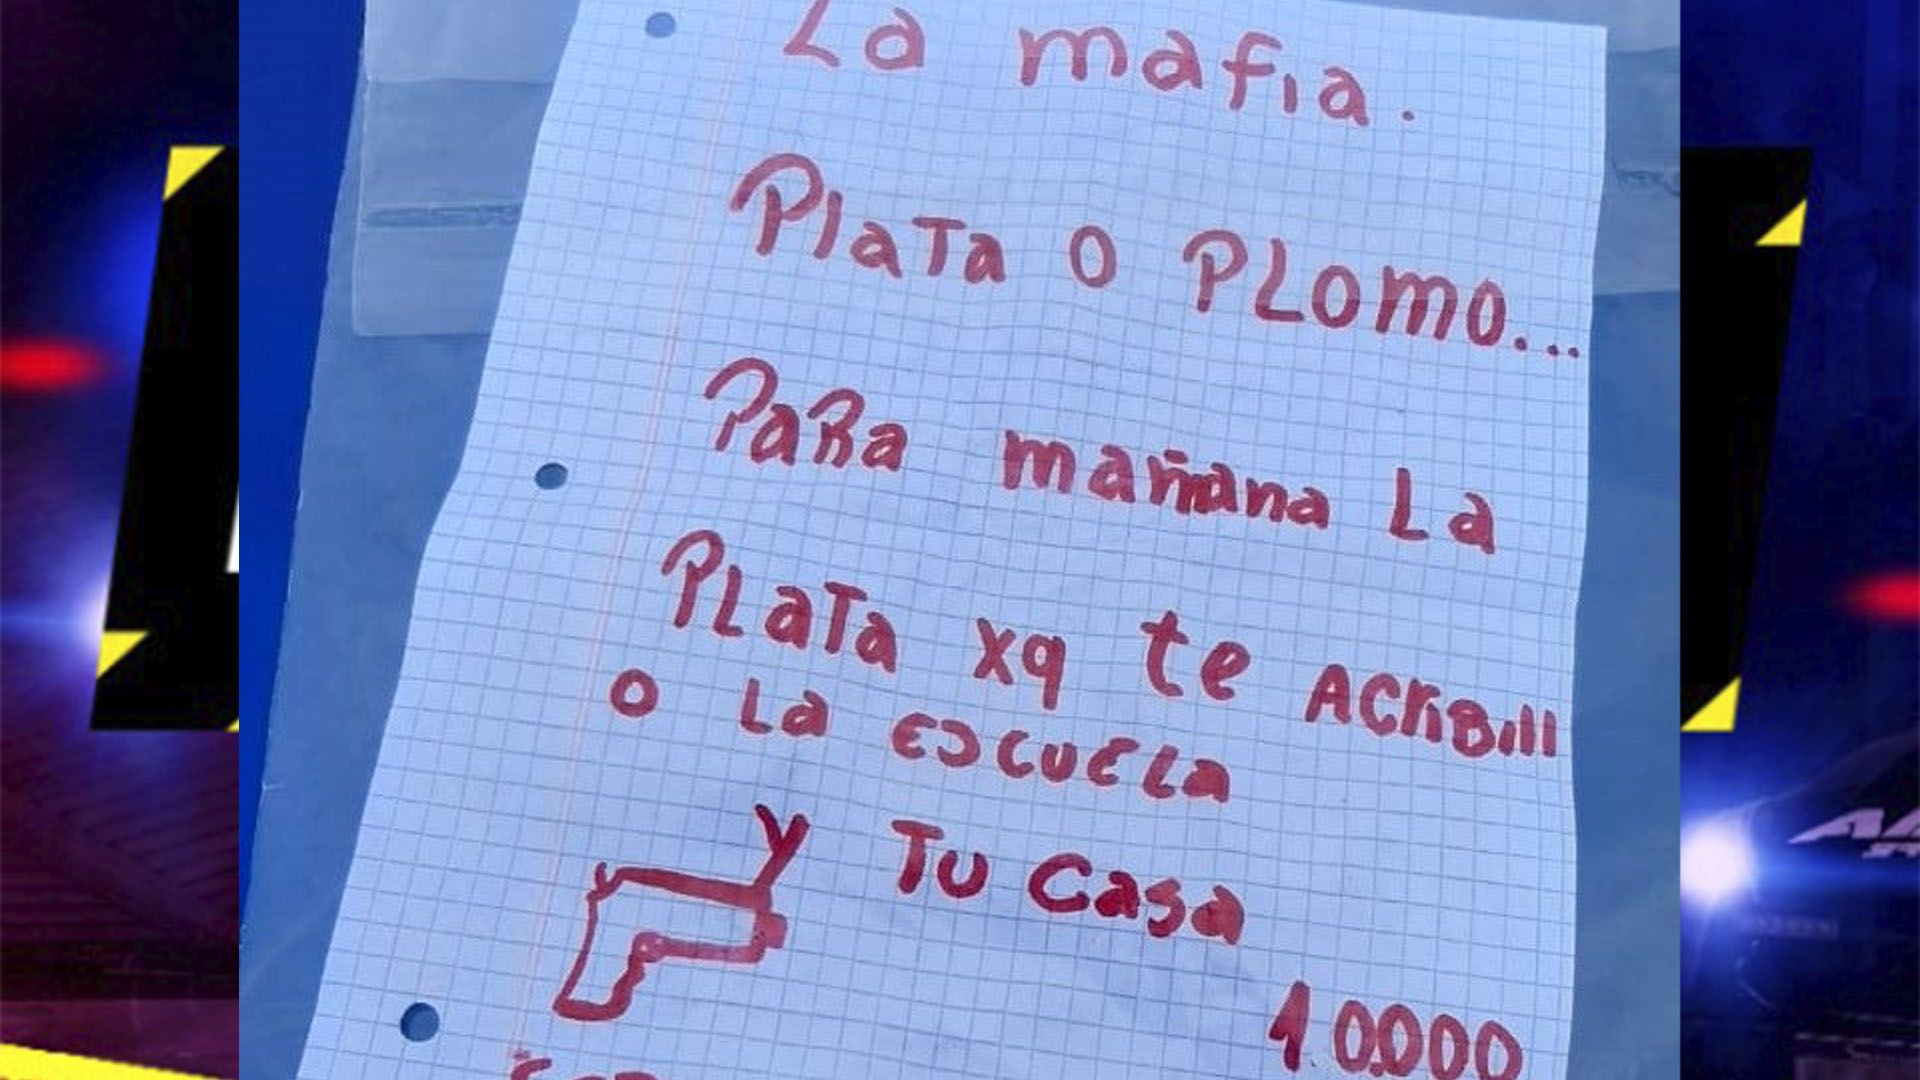 La mafia.
Plata o PLOMO...
PaRa mañana La
PLaTa xq te ACRiBill
o La EsCUELa
y Tu Casa
10.000